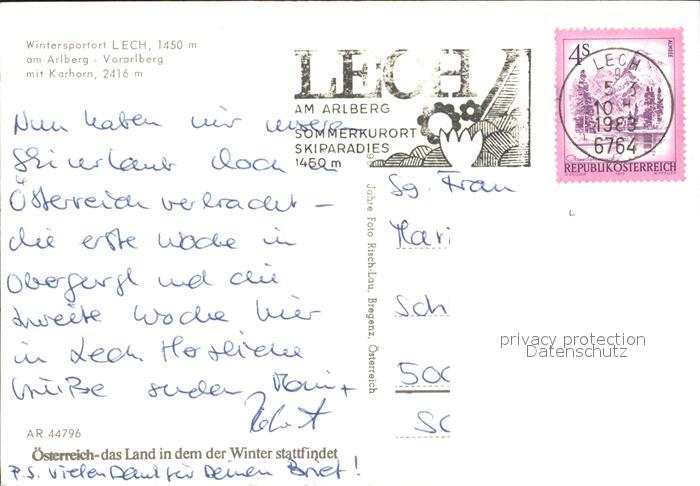 Wintersportort LECH, 1450 m
am Arlberg - Vorarlberg
mit Karhorn, 2416 m
LECH
AM ARLBERG
SOMMERKURORT
SKIPARADIES
1450 m
4S
ALMSEE
LECH
1983
6764
REPUBLIK ÖSTERREICH
Nun haben wir unseren
Skiurlaub doch in
Österreich verbracht –
die erste Woche in
Obergurgl und die
zweite Woche hier
in Lech. Herzliche
Grüße senden
Robert
60 Jahre Foto Risch-Lau, Bregenz, Österreich
Sg. Frau
Mari
Sch
500
privacy protection
Datenschutz
AR 44796
Österreich - das Land in dem der Winter stattfindet
P.S. Vielen Dank für Deinen Brief!